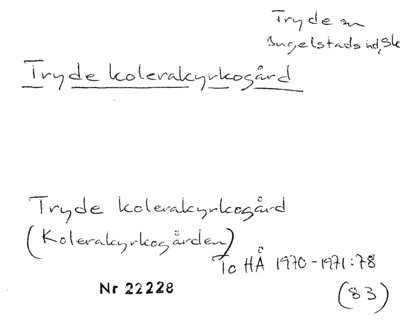 Tryde sn
Ingelstads hd, Sk
Tryde kolerakyrkogård
Tryde kolerakyrkogård
(Kolerakyrkogården)
To HÅ 1970-1971:78
Nr 22228
(83)